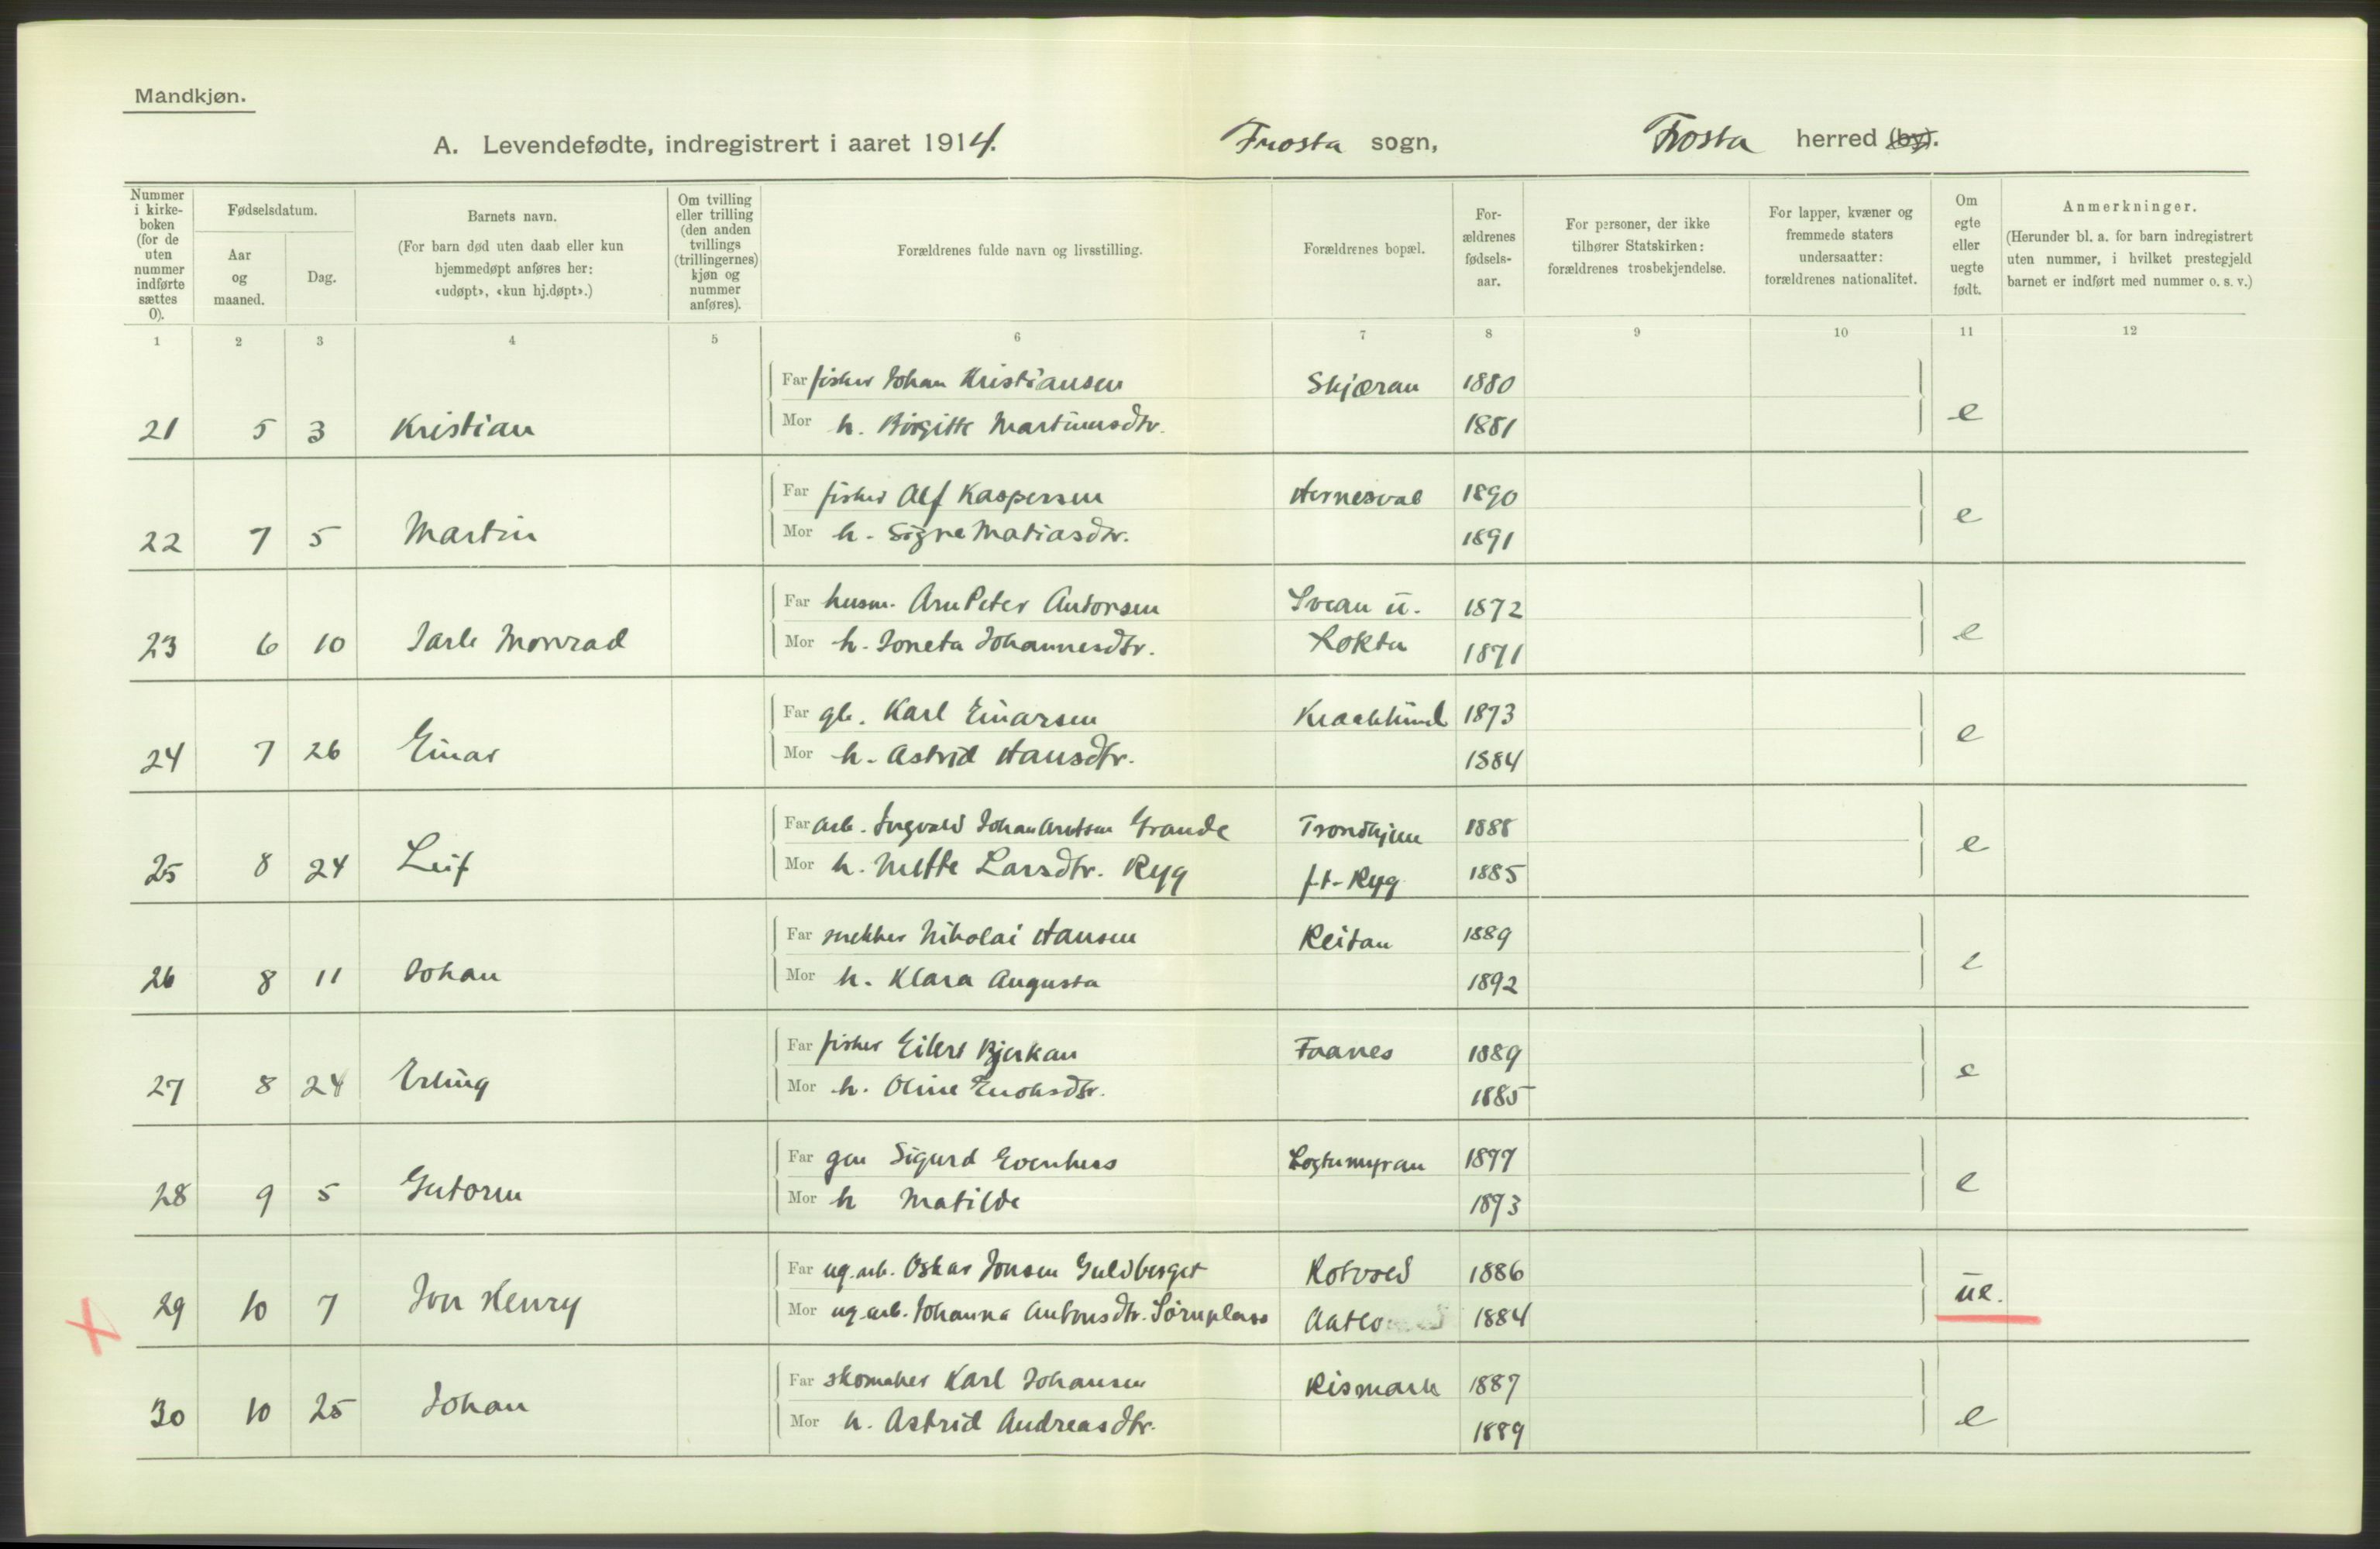 Mandkjøn.
A. Levendefødte, indregistrert i aaret 1914. Frosta sogn, Frosta herred (by).
Nummer i kirke-boken (for de uten nummer indførte sættes 0).
Fødselsdatum.
Aar og maaned.
Dag.
Barnets navn.
(For barn død uten daab eller kun hjemmedøpt anføres her: «udøpt», «kun hj.døpt».)
Om tvilling eller trilling (den anden tvillings (trillingernes) kjøn og nummer anføres).
Forældrenes fulde navn og livsstilling.
Forældrenes bopæl.
For-ældrenes fødsels-aar.
For personer, der ikke tilhører Statskirken: forældrenes trosbekjendelse.
For lapper, kvæner og fremmede staters undersaatter: forældrenes nationalitet.
Om egte eller uegte født.
Anmerkninger.
(Herunder bl. a. for barn indregistrert uten nummer, i hvilket prestegjeld barnet er indført med nummer o. s. v.)
1 2 3 4 5 6 7 8 9 10 11 12
Far fisker Johan Kristiansen Skjæran 1880
21 5 3 Kristian Mor h. Birgitte Martinusdtr. 1881 e
Far fisker Alf Kaspersen 1890
22 7 5 Martin Mor h. Signe Matiasdtr. 1891 e
Far husm. Arn Peter Antonsen Svean u. 1872
23 6 10 Jarle Monrad Mor h. Joneta Johannesdtr. Loktu 1871 e
Far gb. Karl Einarsen 1873
24 7 26 Einar Mor h. Astrid Hansdtr. 1884 e
Far arb. Ingvald Johan Arntsen Grande Trondhjem 1888
25 8 24 Leif Mor h. Mette Larsdtr. Ryg f.t. Ryg 1885 e
Far snekker Nikolai Hansen Reitan 1889
26 8 11 Johan Mor h. Klara Augusta 1892 e
Far fisker Eilert Bjerkan Faanes 1889
27 8 24 Erling Mor h. Oline Enoksdtr. 1885 e
Far Sigurd Evenhus Logtumyran 1877
28 9 5 Gutorm Mor h Matilde 1873 e
Far ug.arb. Oskar Jonsen Guldberget Rotvold 1886
29 10 7 Jon Henry Mor ug.arb. Johanna Antonsdtr. Sørnplass 1884 ue.
Far skomaker Karl Johansen Rismark 1887
30 10 25 Johan Mor h. Astrid Andreasdtr. 1889 e